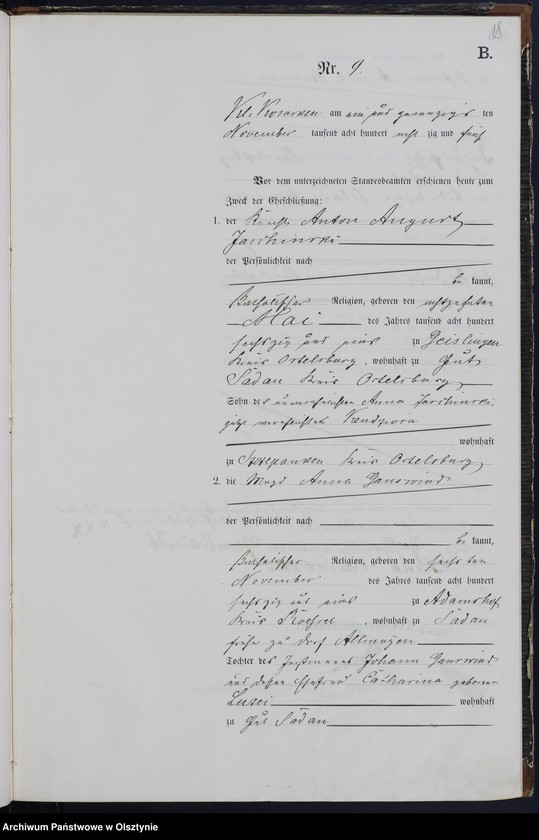 18
B.
Nr. 9.
Kl. am ein und zwanzigsten
November tausend acht hundert acht zig und fünf
Vor dem unterzeichneten Standesbeamten erschienen heute zum
Zweck der Eheschließung:
1. der Knecht Anton August
Jaschinski
der Persönlichkeit nach
be kannt,
katholischer Religion, geboren den achtzehnten
Mai des Jahres tausend acht hundert
sechszig und eins zu Geislingen
Kreis Ortelsburg, wohnhaft zu Gut
Sadau Kreis Ortelsburg
Sohn der unverehelichten Anna Jaschinski
jetzt verehelichte
wohnhaft
zu Kreis Ortelsburg
2. die Magd Anna Ganswind
der Persönlichkeit nach
be kannt,
katholischer Religion, geboren den sechsten
November des Jahres tausend acht hundert
sechszig und eins zu Adamshof
Kreis Roessel, wohnhaft zu Sadau
früher zu Dorf Allmoyen
Tochter des Instmanns Johann Ganswind
und dessen Ehefrau Catharina geborene
wohnhaft
zu Gut Sadau
Archiwum Państwowe w Olsztynie